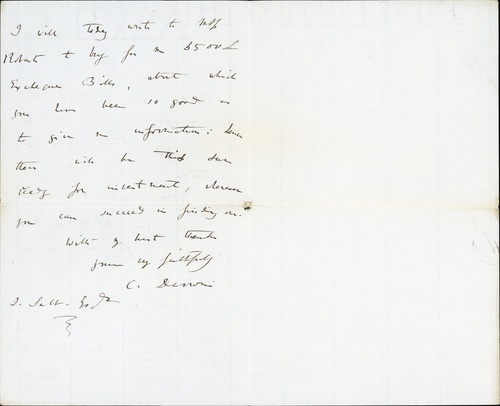 I will today write to Mrs
Robarts to buy for me £5000
Exchequer Bills, about which
you have been so good as
to give me information: hence
there will be this sum
ready for investment, whenever
you can succeed in finding one.
With my best thanks
yours very faithfully
C. Darwin
J. Salt. Esq